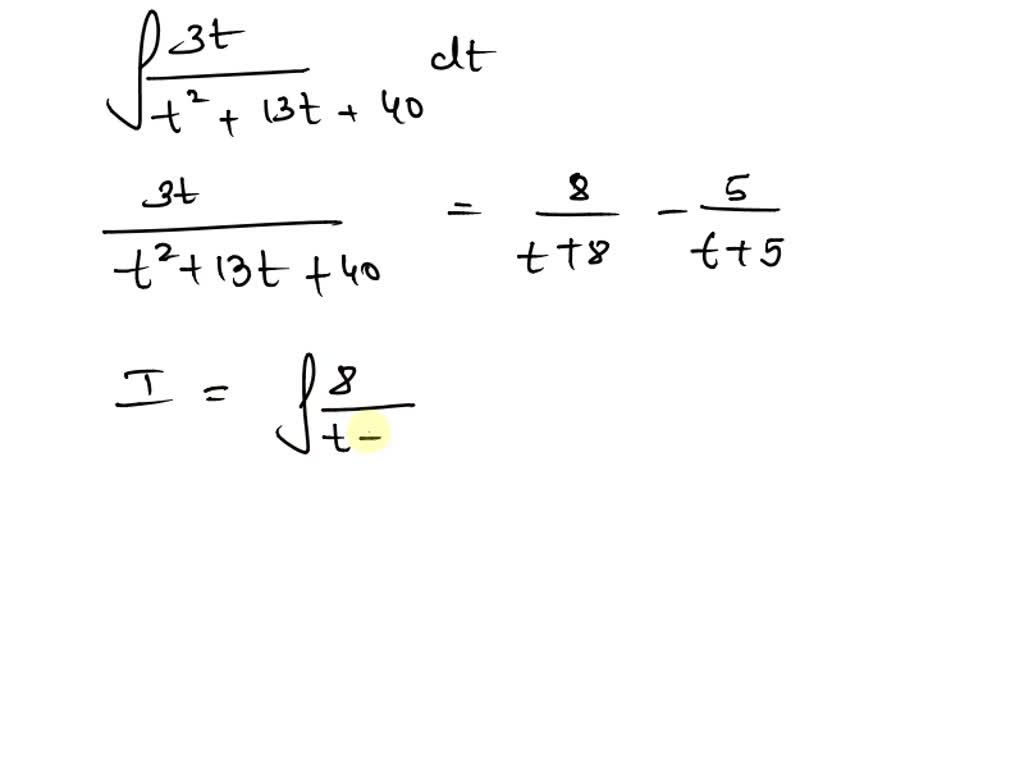 ∫ 3t / (t² + 13t + 40) dt
3t / (t² + 13t + 40) = 8 / (t + 8) − 5 / (t + 5)
I = ∫ 8 / (t −